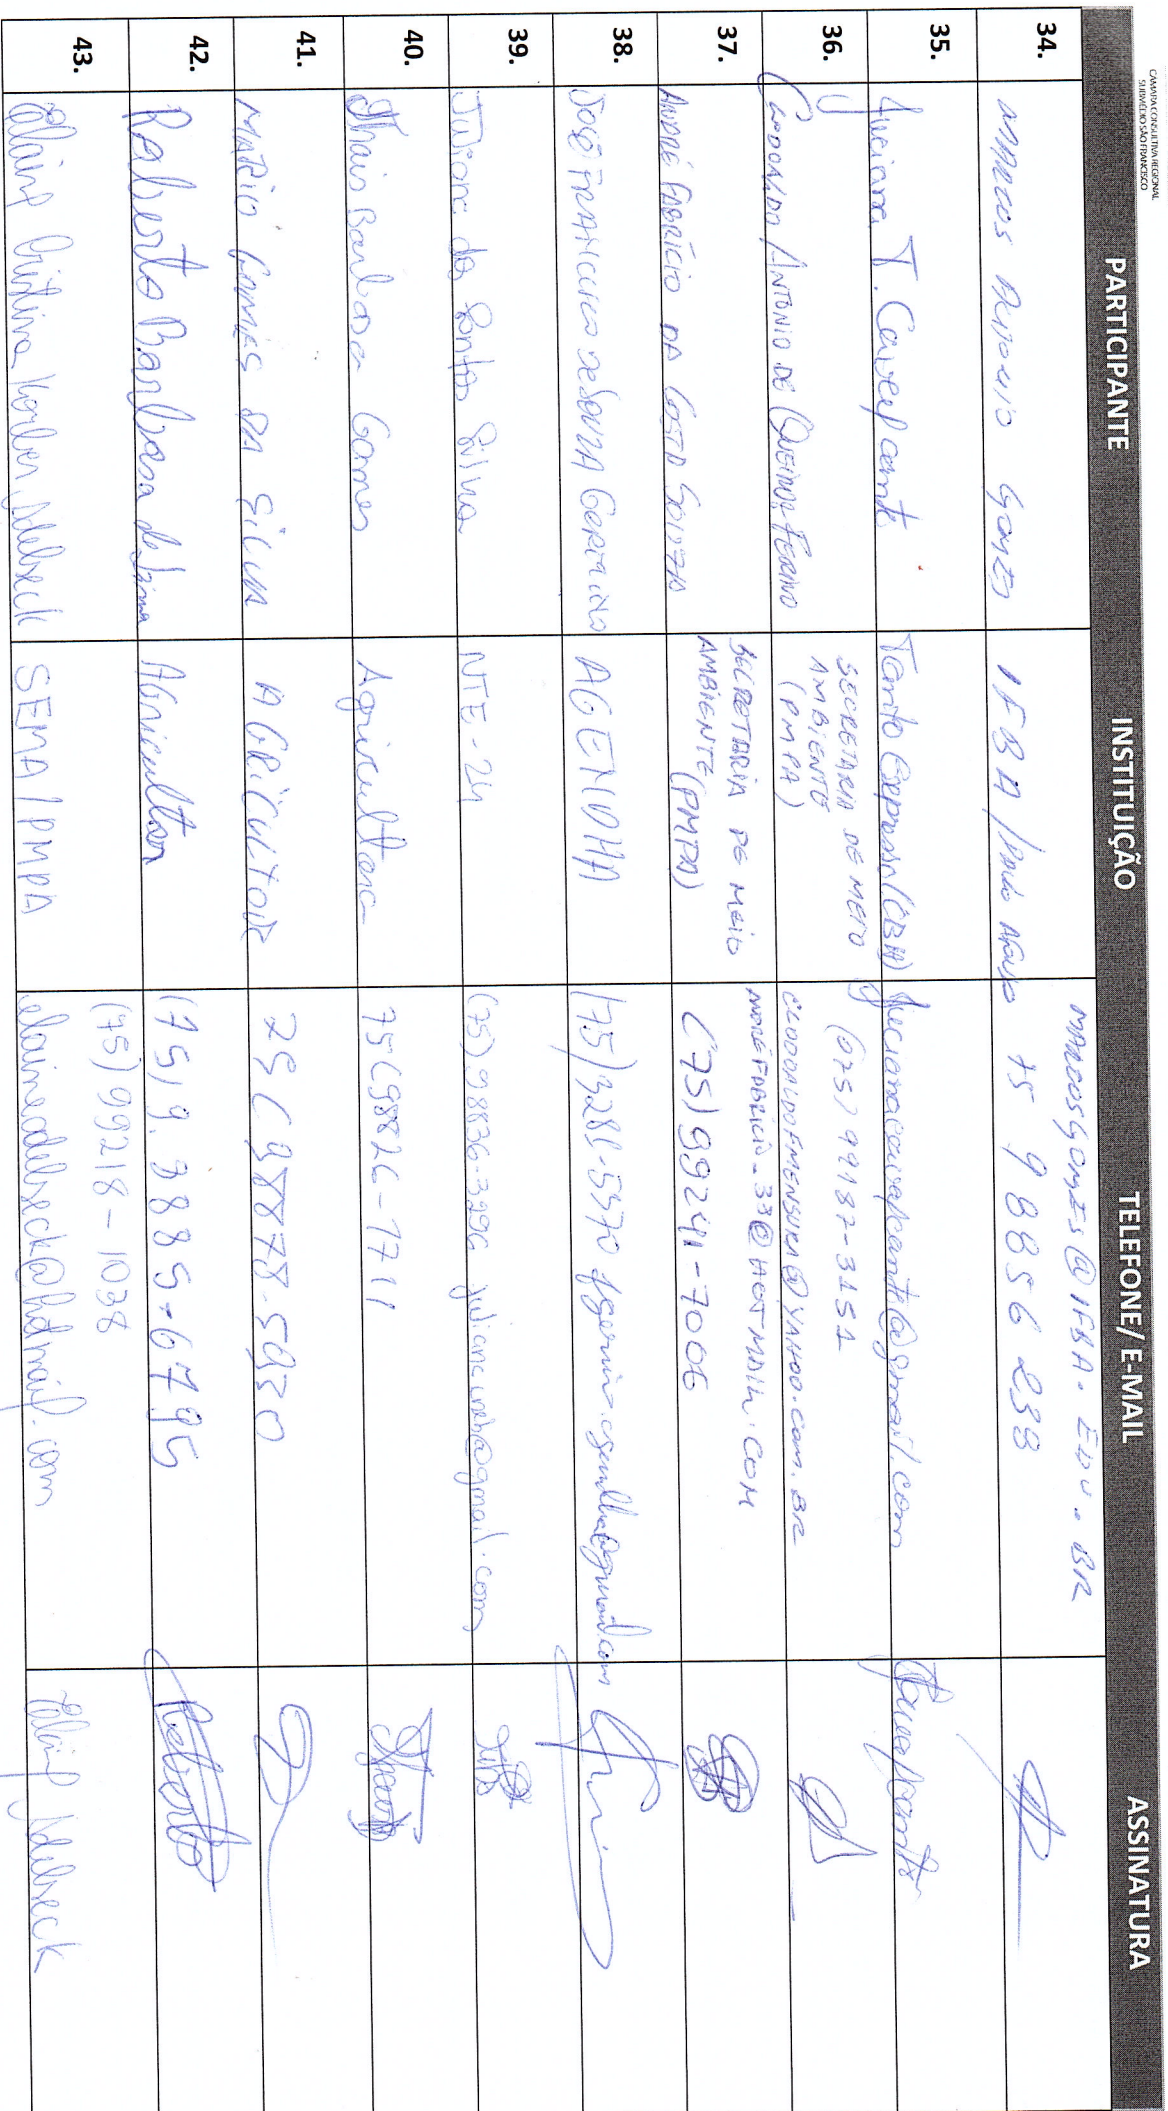 CÂMARA CONSULTIVA REGIONAL
SUBMÉDIO SÃO FRANCISCO
PARTICIPANTE INSTITUIÇÃO TELEFONE/ E-MAIL ASSINATURA
34. MARCOS ANTONIO GOMES IFBA / PAULO AFONSO MARCOSGOMES@IFBA.EDU.BR
75 98856 238
35. Luciana T. Cavalcante luciana @gmail.com
36. CLODOALDO ANTONIO DE QUEIROZ FERINO SECRETARIA DE MEIO
AMBIENTE
(PMPA)
(075) 99187-3151
CLODOALDOFMENSURA@YAHOO.COM.BR
37. ANDRÉ FABRÍCIO DA COSTA SOUZA SECRETARIA DE MEIO
AMBIENTE (PMPA)
ANDREFABRICIO-33@HOTMAIL.COM
(75) 99241-7006
38. JOSÉ FRANCISCO DE SOUZA AGENDHA (75) 3281-5370
39. Juliana dos Santos Silva NTE-24 (75) 98836-3296 julianauneb@gmail.com
40. Thais Barbosa Gomes Agricultora 75 (98826-1711
41. MARIO GOMES DA SILVA AGRICULTOR 75 (98878-5930
42. Roberto Barbosa de Lima Agricultor (75) 9.8885-6795 Roberto
43. Elaine Cristina SEMA / PMPA (75) 99218-1038
elaineadelseck@hotmail.com